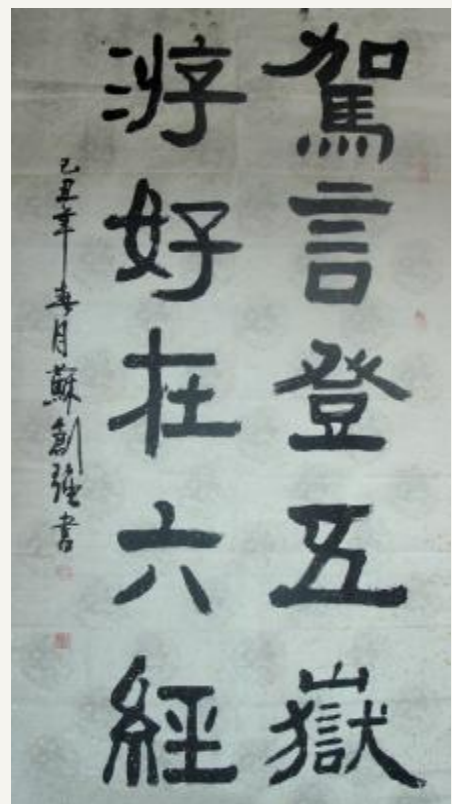 駕言登五嶽
游好在六經
己丑年春月蘇創強書